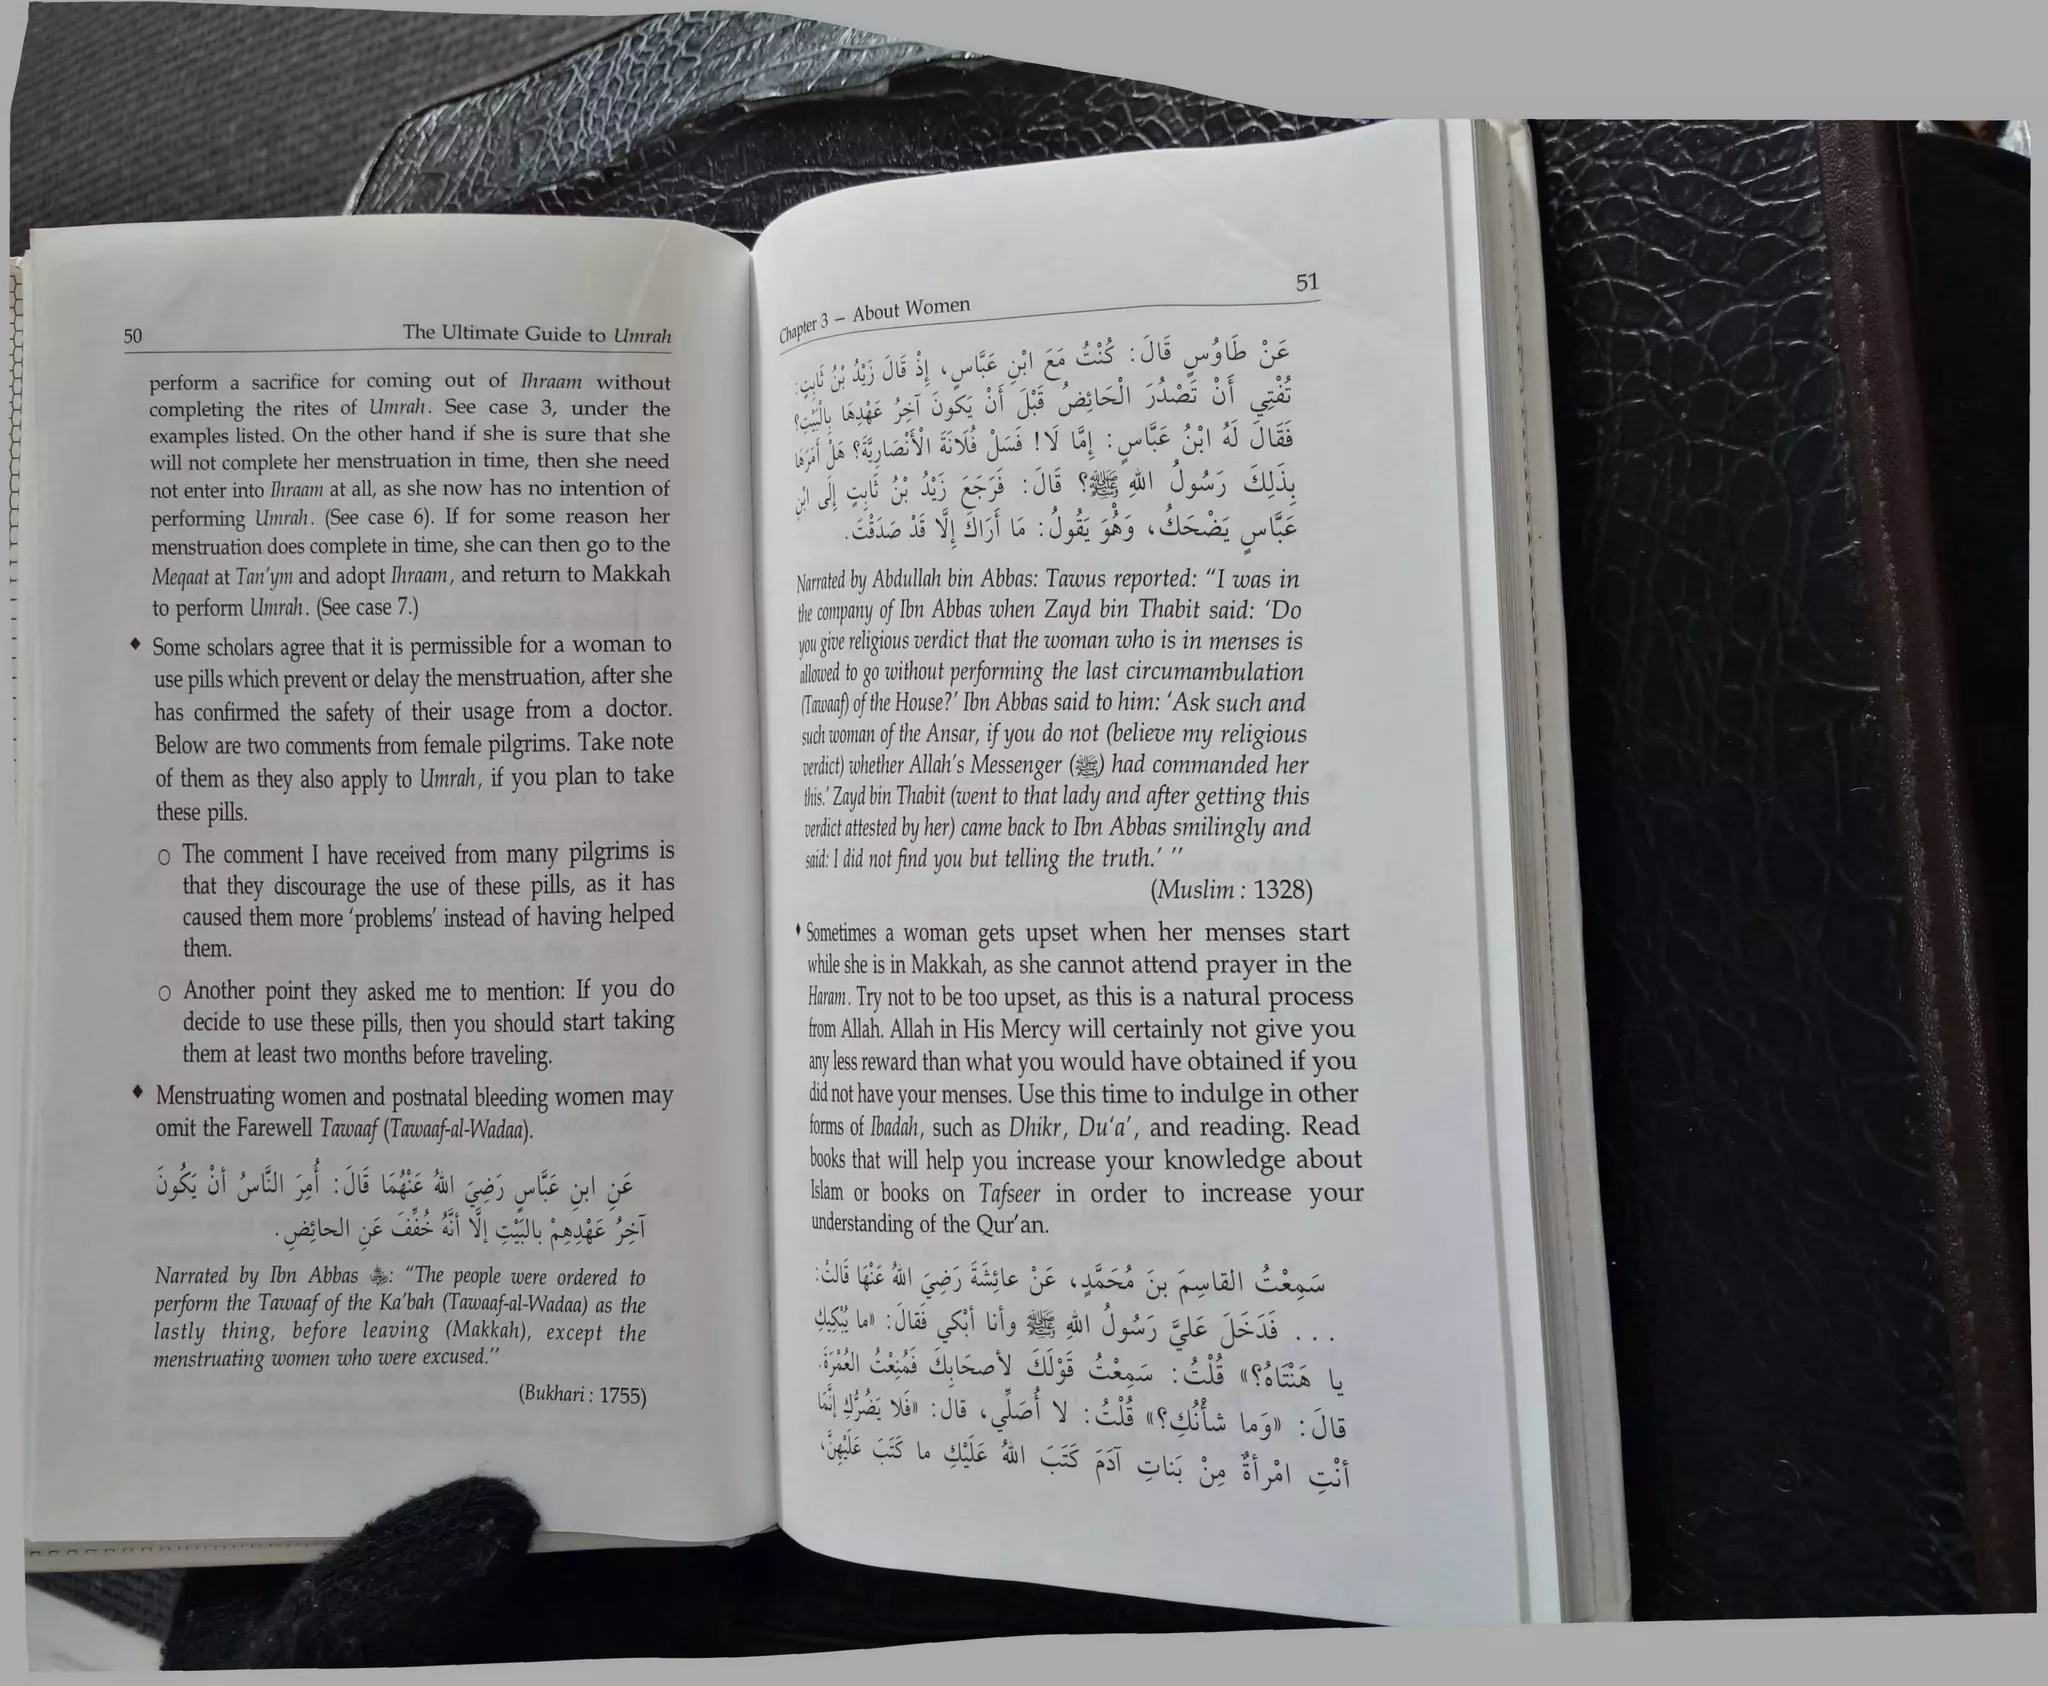 50
The Ultimate Guide to Umrah
perform a sacrifice for coming out of Ihraam without
completing the rites of Umrah. See case 3, under the
examples listed. On the other hand if she is sure that she
will not complete her menstruation in time, then she need
not enter into Ihraam at all, as she now has no intention of
performing Umrah. (See case 6). If for some reason her
menstruation does complete in time, she can then go to the
Meqaat at Tan'ym and adopt Ihraam, and return to Makkah
to perform Umrah. (See case 7.)
♦ Some scholars agree that it is permissible for a woman to
use pills which prevent or delay the menstruation, after she
has confirmed the safety of their usage from a doctor.
Below are two comments from female pilgrims. Take note
of them as they also apply to Umrah, if you plan to take
these pills.
o The comment I have received from many pilgrims is
that they discourage the use of these pills, as it has
caused them more 'problems' instead of having helped
them.
o Another point they asked me to mention: If you do
decide to use these pills, then you should start taking
them at least two months before traveling.
♦ Menstruating women and postnatal bleeding women may
omit the Farewell Tawaaf (Tawaaf-al-Wadaa).
عَنِ ابنِ عَبَّاسٍ رَضِيَ اللهُ عَنْهُمَا قَالَ: أُمِرَ النَّاسُ أنْ يَكُونَ
آخِرُ عَهْدِهِمْ بالبَيْتِ إلَّا أنَّهُ خُفِّفَ عَنِ الحائِضِ.
Narrated by Ibn Abbas ؓ: "The people were ordered to
perform the Tawaaf of the Ka'bah (Tawaaf-al-Wadaa) as the
lastly thing, before leaving (Makkah), except the
menstruating women who were excused."
(Bukhari : 1755)
51
Chapter 3 – About Women
عَنْ طَاوُسٍ قَالَ: كُنْتُ مَعَ ابْنِ عَبَّاسٍ، إِذْ قَالَ زَيْدُ بْنُ ثَابِتٍ:
تُفْتِي أَنْ تَصْدُرَ الْحَائِضُ قَبْلَ أَنْ يَكُونَ آخِرُ عَهْدِهَا بِالْبَيْتِ؟
فَقَالَ لَهُ ابْنُ عَبَّاسٍ: إِمَّا لَا! فَسَلْ فُلَانَةَ الْأَنْصَارِيَّةَ؟ هَلْ أَمَرَهَا
بِذَلِكَ رَسُولُ اللهِ ﷺ؟ قَالَ: فَرَجَعَ زَيْدُ بْنُ ثَابِتٍ إِلَى ابْنِ
عَبَّاسٍ يَضْحَكُ، وَهُوَ يَقُولُ: مَا أَرَاكَ إِلَّا قَدْ صَدَقْتَ.
Narrated by Abdullah bin Abbas: Tawus reported: "I was in
the company of Ibn Abbas when Zayd bin Thabit said: 'Do
you give religious verdict that the woman who is in menses is
allowed to go without performing the last circumambulation
(Tawaaf) of the House?' Ibn Abbas said to him: 'Ask such and
such woman of the Ansar, if you do not (believe my religious
verdict) whether Allah's Messenger (ﷺ) had commanded her
this.' Zayd bin Thabit (went to that lady and after getting this
verdict attested by her) came back to Ibn Abbas smilingly and
said: I did not find you but telling the truth.' "
(Muslim : 1328)
♦ Sometimes a woman gets upset when her menses start
while she is in Makkah, as she cannot attend prayer in the
Haram. Try not to be too upset, as this is a natural process
from Allah. Allah in His Mercy will certainly not give you
any less reward than what you would have obtained if you
did not have your menses. Use this time to indulge in other
forms of Ibadah, such as Dhikr, Du'a', and reading. Read
books that will help you increase your knowledge about
Islam or books on Tafseer in order to increase your
understanding of the Qur'an.
سَمِعْتُ القاسِمَ بنَ مُحَمَّدٍ، عَنْ عائِشَةَ رَضِيَ اللهُ عَنْهَا قَالتْ:
. . . فَدَخَلَ عَليَّ رَسُولُ اللهِ ﷺ وأنا أبْكي فَقالَ: «ما يُبْكِيكِ
يا هَنْتَاهُ؟» قُلْتُ: سَمِعْتُ قَوْلَكَ لأصحَابِكَ فَمُنِعْتُ العُمْرَةَ.
قالَ: «وَما شأنُكِ؟» قُلْتُ: لا أُصَلِّي، قال: «فَلا يَضُرُّكِ إنَّمَا
أنْتِ امْرأةٌ مِنْ بَناتِ آدَمَ كَتَبَ اللهُ عَلَيْكِ ما كَتَبَ عَلَيْهِنَّ،